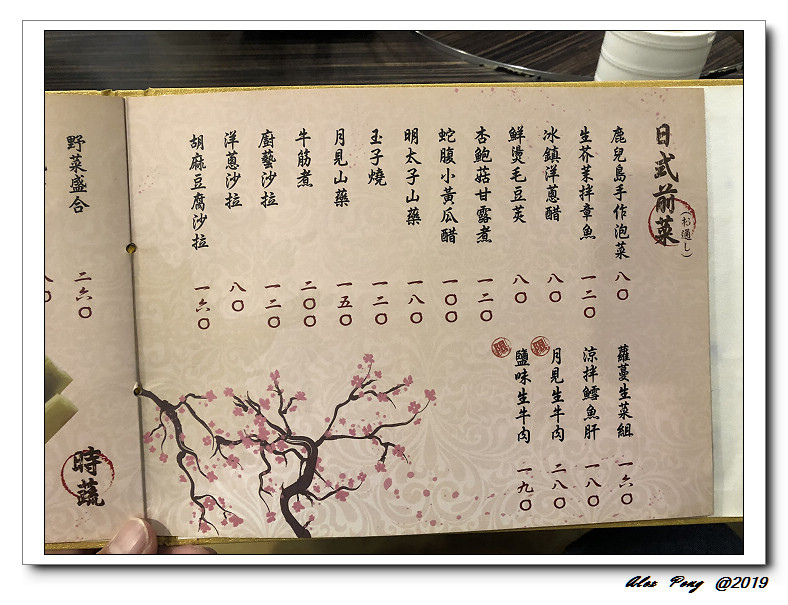 日式前菜
(お通し)
鹿兒島手作泡菜 八〇
生芥茉拌章魚 一二〇
冰鎮洋蔥醋 八〇
鮮燙毛豆莢 八〇
杏鮑菇甘露煮 一二〇
蛇腹小黃瓜醋 一〇〇
明太子山藥 一八〇
玉子燒 一二〇
月見山藥 一五〇
牛筋煮 二〇〇
廚藝沙拉 一二〇
洋蔥沙拉 八〇
胡麻豆腐沙拉 一六〇
蘿蔓生菜組 一六〇
涼拌鱈魚肝 一八〇
限 月見生牛肉 二八〇
限 鹽味生牛肉 一九〇
野菜盛合 二六〇
八〇
時蔬
Alex Peng @2019